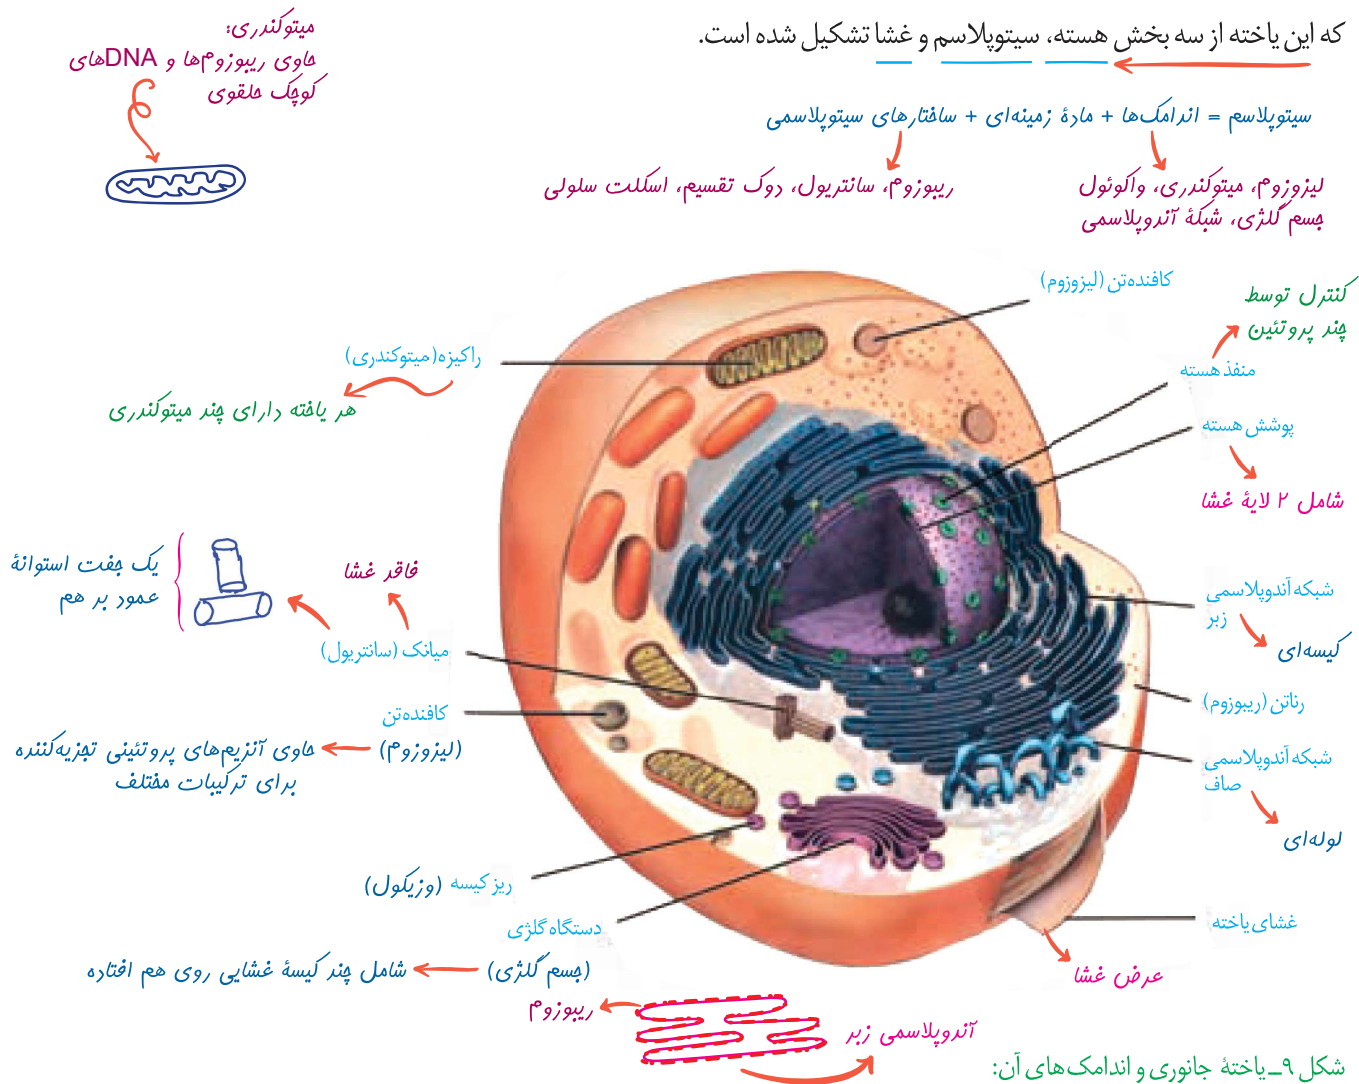 که این یاخته از سه بخش هسته، سیتوپلاسم و غشا تشکیل شده است.
میتوکندری:
حاوی ریبوزوم‌ها و DNAهای
کوچک حلقوی
سیتوپلاسم = اندامک‌ها + مادهٔ زمینه‌ای + ساختارهای سیتوپلاسمی
لیزوزوم، میتوکندری، واکوئول
جسم گلژی، شبکهٔ آندوپلاسمی
ریبوزوم، سانتریول، دوک تقسیم، اسکلت سلولی
کافنده‌تن (لیزوزوم)
کنترل توسط
چند پروتئین
منفذ هسته
پوشش هسته
شامل ۲ لایهٔ غشا
شبکه آندوپلاسمی
زبر
کیسه‌ای
رناتن (ریبوزوم)
شبکه آندوپلاسمی
صاف
لوله‌ای
غشای یاخته
عرض غشا
راکیزه (میتوکندری)
هر یاخته دارای چند میتوکندری
یک جفت استوانهٔ
عمود بر هم
فاقد غشا
میانک (سانتریول)
کافنده‌تن
(لیزوزوم)
حاوی آنزیم‌های پروتئینی تجزیه‌کننده
برای ترکیبات مختلف
ریز کیسه (وزیکول)
دستگاه گلژی
(جسم گلژی)
شامل چند کیسهٔ غشایی روی هم افتاده
ریبوزوم
آندوپلاسمی زبر
شکل ۹ـ یاختهٔ جانوری و اندامک‌های آن: